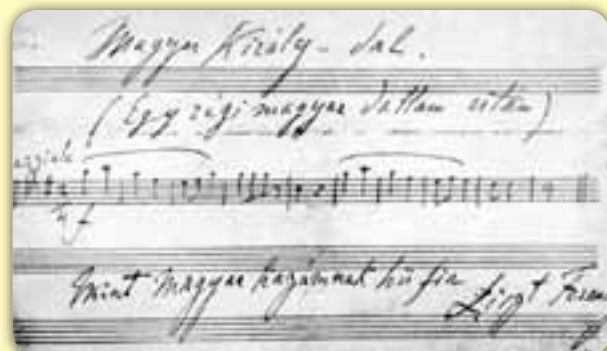 Magyar Király-dal.
(Egy régi magyar dallam után)
Mint magyar hazámnak hű fia
Liszt Feren